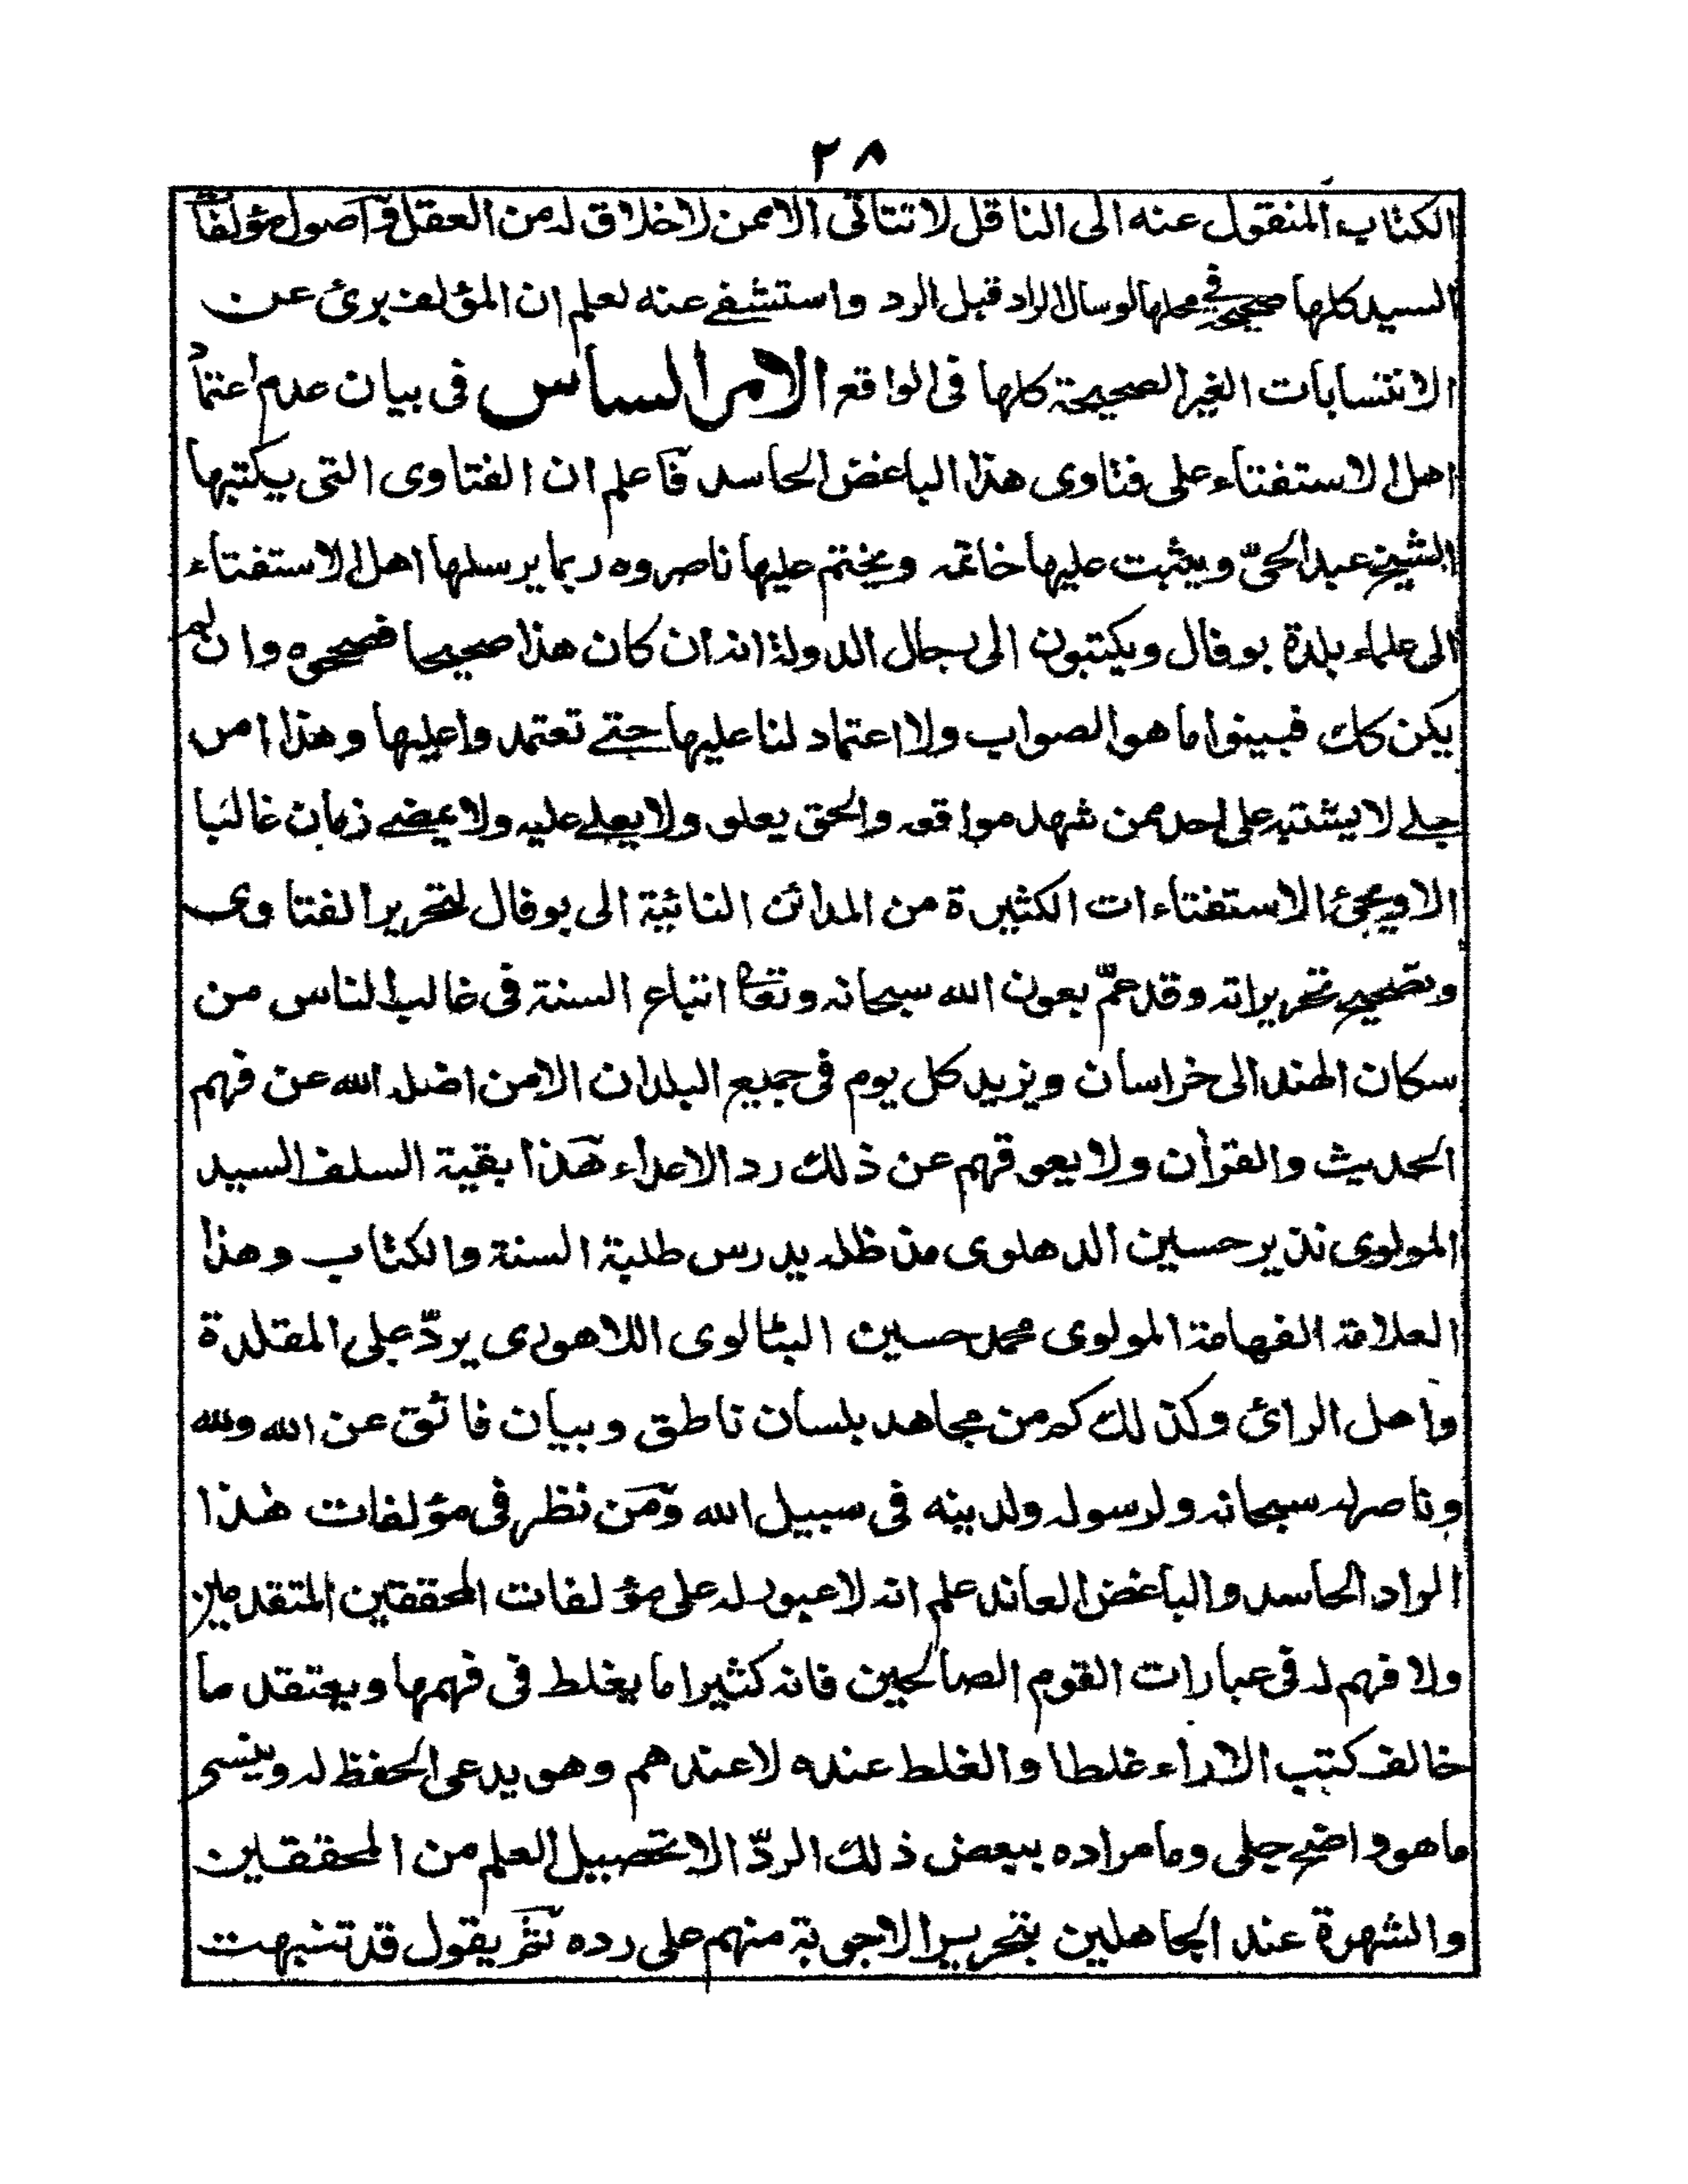 ٢٨
الكتاب المنقول عنه الى الناقل لا تتاتى الا ممن لا خلاق له من العقل و اصول مؤلفات
السيد كلها صحيحة في محلها لو سال الراد قبل الرد واستشفے عنه لعلم ان المؤلف برئ عن
الانتسابات الغير الصحيحة كلها فى الواقع الامر السادس فى بيان عدم اعتماد
اهل الاستفتاء على فتاوى هذا الباغض الحاسد فاعلم ان الفتاوى التى يكتبها
الشيخ عبد الحىّ ويثبت عليها خاتمه ويختم عليها ناصروه ربما يرسلها اهل الاستفتاء
الى علماء بلدة بوفال ويكتبون الى رجال الدولة انه ان كان هذا صحيحا فصححوه وان لم
يكن كك فبينوا ما هو الصواب ولا اعتماد لنا عليها حتے تعتمدوا عليها وهذا امر
جلے لا يشتبه على احد ممن شهد مواقعه والحق يعلو ولا يعلے عليه ولا يمضے زمان غالبا
الا ويجئ الاستفتاءات الكثيرة من المدائن النائية الى بوفال لتحرير الفتاوى
وتصحيح تحريراته وقد عمّ بعون الله سبحانه وتعا اتباع السنة فى غالب الناس من
سكان الهند الى خراسان ويزيد كل يوم فى جميع البلدان الا من اضله الله عن فهم
الحديث والقرأن ولا يعوقهم عن ذلك رد الاعداء هذا بقية السلف السيد
المولوى نذير حسين الدهلوى مد ظله يدرس طلبة السنة والكتاب وهذا
العلامة الفهامة المولوى محمد حسين البٹالوى اللاهورى يردّ على المقلدة
واهل الرائ وكذلك كم من مجاهد بلسان ناطق وبيان فائق عن الله ولله
وناصر له سبحانه ولرسوله ولدينه فى سبيل الله ومن نظر فى مؤلفات هذا
الراد الحاسد والباغض العاند علم انه لا عبور له على مؤلفات المحققين المتقدمين
ولا فهم له فى عبارات القوم الصالحين فانه كثيرا ما يغلط فى فهمها ويعتقد ما
خالف كتب الاراء غلطا والغلط عنده لا عندهم وهو يدعى الحفظ له وينسى
ما هو واضح جلى وما مراده ببعض ذلك الردّ الا تحصيل العلم من المحققين
والشهرة عند الجاهلين بتحرير الاجوبة منهم على رده ثم يقول قد تنبهت